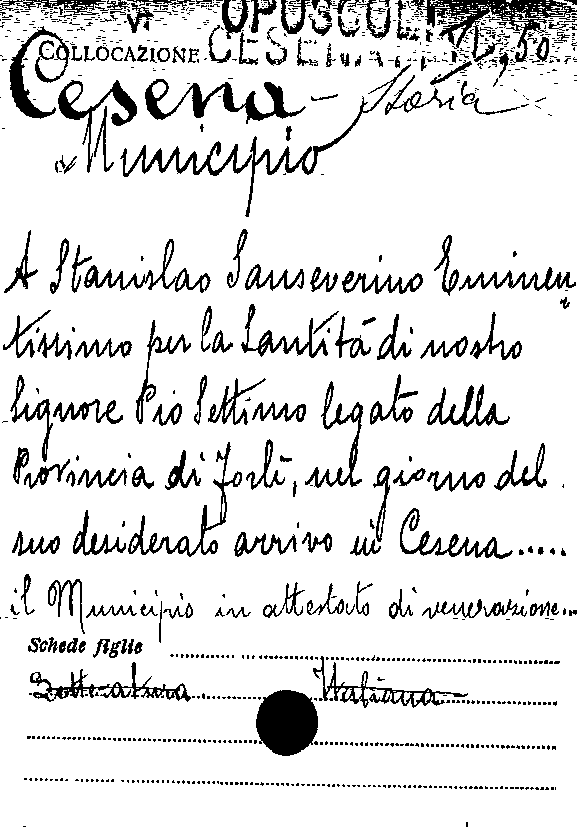 VI OPUSCOLI
COLLOCAZIONE CESENA VI, 50
Cesena - Storia
Municipio
A Stanislao Sanseverino Eminen
tissimo per la Santità di nostro
Signore Pio Settimo legato della
Provincia di Forlì, nel giorno del
suo desiderato arrivo in Cesena.....
il Municipio in attestato di venerazione...
Schede figlie
Letteratura Italiana